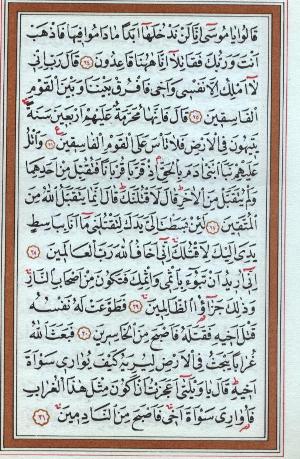 قَالُوا يَا مُوسَى إِنَّا لَنْ نَدْخُلَهَا أَبَدًا مَا دَامُوا فِيهَا فَاذْهَبْ
أَنْتَ وَرَبُّكَ فَقَاتِلَا إِنَّا هَهُنَا قَاعِدُونَ ﴿٢٤﴾ قَالَ رَبِّ إِنِّي
لَا أَمْلِكُ إِلَّا نَفْسِي وَأَخِي فَافْرُقْ بَيْنَنَا وَبَيْنَ الْقَوْمِ
الْفَاسِقِينَ ﴿٢٥﴾ قَالَ فَإِنَّهَا مُحَرَّمَةٌ عَلَيْهِمْ أَرْبَعِينَ سَنَةً
يَتِيهُونَ فِي الْأَرْضِ فَلَا تَأْسَ عَلَى الْقَوْمِ الْفَاسِقِينَ ﴿٢٦﴾ وَاتْلُ
عَلَيْهِمْ نَبَأَ ابْنَيْ آدَمَ بِالْحَقِّ إِذْ قَرَّبَا قُرْبَانًا فَتُقُبِّلَ مِنْ أَحَدِهِمَا
وَلَمْ يُتَقَبَّلْ مِنَ الْآخَرِ قَالَ لَأَقْتُلَنَّكَ قَالَ إِنَّمَا يَتَقَبَّلُ اللَّهُ مِنَ
الْمُتَّقِينَ ﴿٢٧﴾ لَئِنْ بَسَطْتَ إِلَيَّ يَدَكَ لِتَقْتُلَنِي مَا أَنَا بِبَاسِطٍ
يَدِيَ إِلَيْكَ لِأَقْتُلَكَ إِنِّي أَخَافُ اللَّهَ رَبَّ الْعَالَمِينَ ﴿٢٨﴾
إِنِّي أُرِيدُ أَنْ تَبُوءَ بِإِثْمِي وَإِثْمِكَ فَتَكُونَ مِنْ أَصْحَابِ النَّارِ
وَذَلِكَ جَزَاؤُا الظَّالِمِينَ ﴿٢٩﴾ فَطَوَّعَتْ لَهُ نَفْسُهُ
قَتْلَ أَخِيهِ فَقَتَلَهُ فَأَصْبَحَ مِنَ الْخَاسِرِينَ ﴿٣٠﴾ فَبَعَثَ اللَّهُ
غُرَابًا يَبْحَثُ فِي الْأَرْضِ لِيُرِيَهُ كَيْفَ يُوَارِي سَوْأَةَ
أَخِيهِ قَالَ يَا وَيْلَتَى أَعَجَزْتُ أَنْ أَكُونَ مِثْلَ هَذَا الْغُرَابِ
فَأُوَارِيَ سَوْأَةَ أَخِي فَأَصْبَحَ مِنَ النَّادِمِينَ ﴿٣١﴾